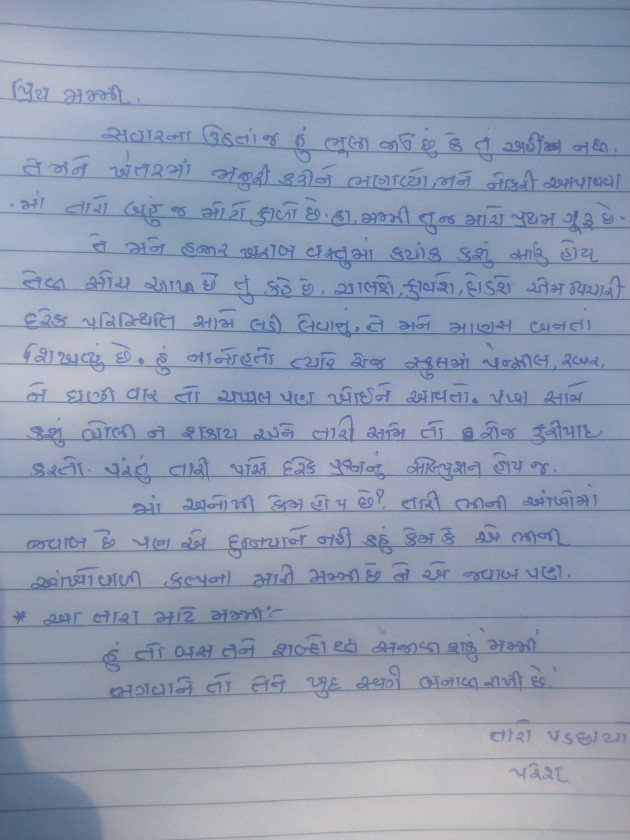 પ્રિય મમ્મી,
સવારના ઉઠતાં જ હું ભુલી જાઉં છું કે તું અહીં નથી.
તે મને ખેતરમાં મજુરી કરીને ભણાવ્યો, મને નોકરી અપાવવા
માં તારો બહું જ મોટો ફાળો છે. હા, મમ્મી તું જ મારો પ્રથમ ગુરૂ છે.
તે મને હજાર ખરાબ વસ્તુમાં ક્યાંક કશું સારું હોય
તું કહે છે. ચાલશે, ફાવશે, દોડશે એમ વિચારી
દરેક પરિસ્થિતિ સામે લડી લેવાનું. તે મને માણસ બનતાં
શિખવ્યું છે. હું નાનો હતો ત્યારે રોજ સ્કુલમાં પેન્સીલ, રબર,
ને ઘણી વાર તો ચપ્પલ પણ ખોઈને આવતો. પપ્પા સામે
કશું બોલી ન શકાય અને તારી સામે તો રોજ ફરીયાદ
કરતો. પરંતુ તારી પાસે દરેક પ્રશ્નનું સોલ્યુશન હોય જ.
માં અનોખી કેમ હોય છે? તારી ભીની આંખોમાં
જવાબ છે પણ એ દુનિયાને નહી કહું કેમ કે એ ભીની
આંખોવાળી કલ્પના મારી મમ્મી છે ને એ જવાબ પણ.
* આ તારા માટે મમ્મી:-
હું તો બસ તને શબ્દો થી સજાવી શકું મમ્મી
ભગવાને તો તને ખુદ સ્વર્ગ બનાવી રાખી છે.
તારો પડછાયો
પરેશ